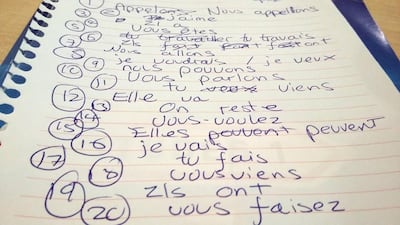 ① Appelons. Nous appellons
J'aime
Il a
Vous êtes
tu travailler tu travais
Ils font
⑧ Nous allons
je voudrais / je veux
⑩ ⑨ nous pouvons
⑪ vous parlons
tu viens
⑫ Elle va
⑬ On reste
⑭ vous-voulez
⑮ Elles peuvent
⑯ je vais
⑰ tu fais
⑱ vous viens
⑲ Ils ont
⑳ vous faisez